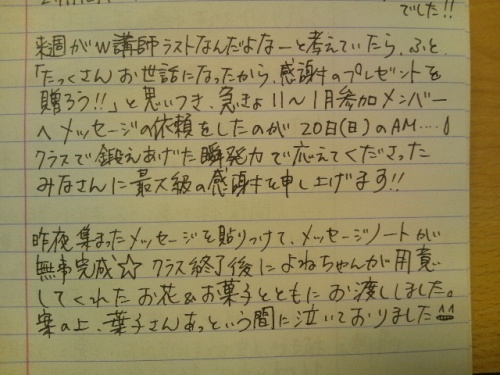 でした!!
来週がW講師ラストなんだよなーと考えていたら、ふと
「たっくさんお世話になったから、感謝のプレゼントを
贈ろう!!」と思いつき、急きょ11~1月参加メンバー
へメッセージの依頼をしたのが20日(日)のAM....
クラスで鍛えあげた瞬発力で応えてくださった
みなさんに最大級の感謝を申し上げます!!
昨夜集まったメッセージを貼りつけて、メッセージノートが
無事完成☆ クラス終了後によねちゃんが用意
してくれたお花&お菓子とともにお渡ししました。
案の上、葉子さんあっという間に泣いておりました^^